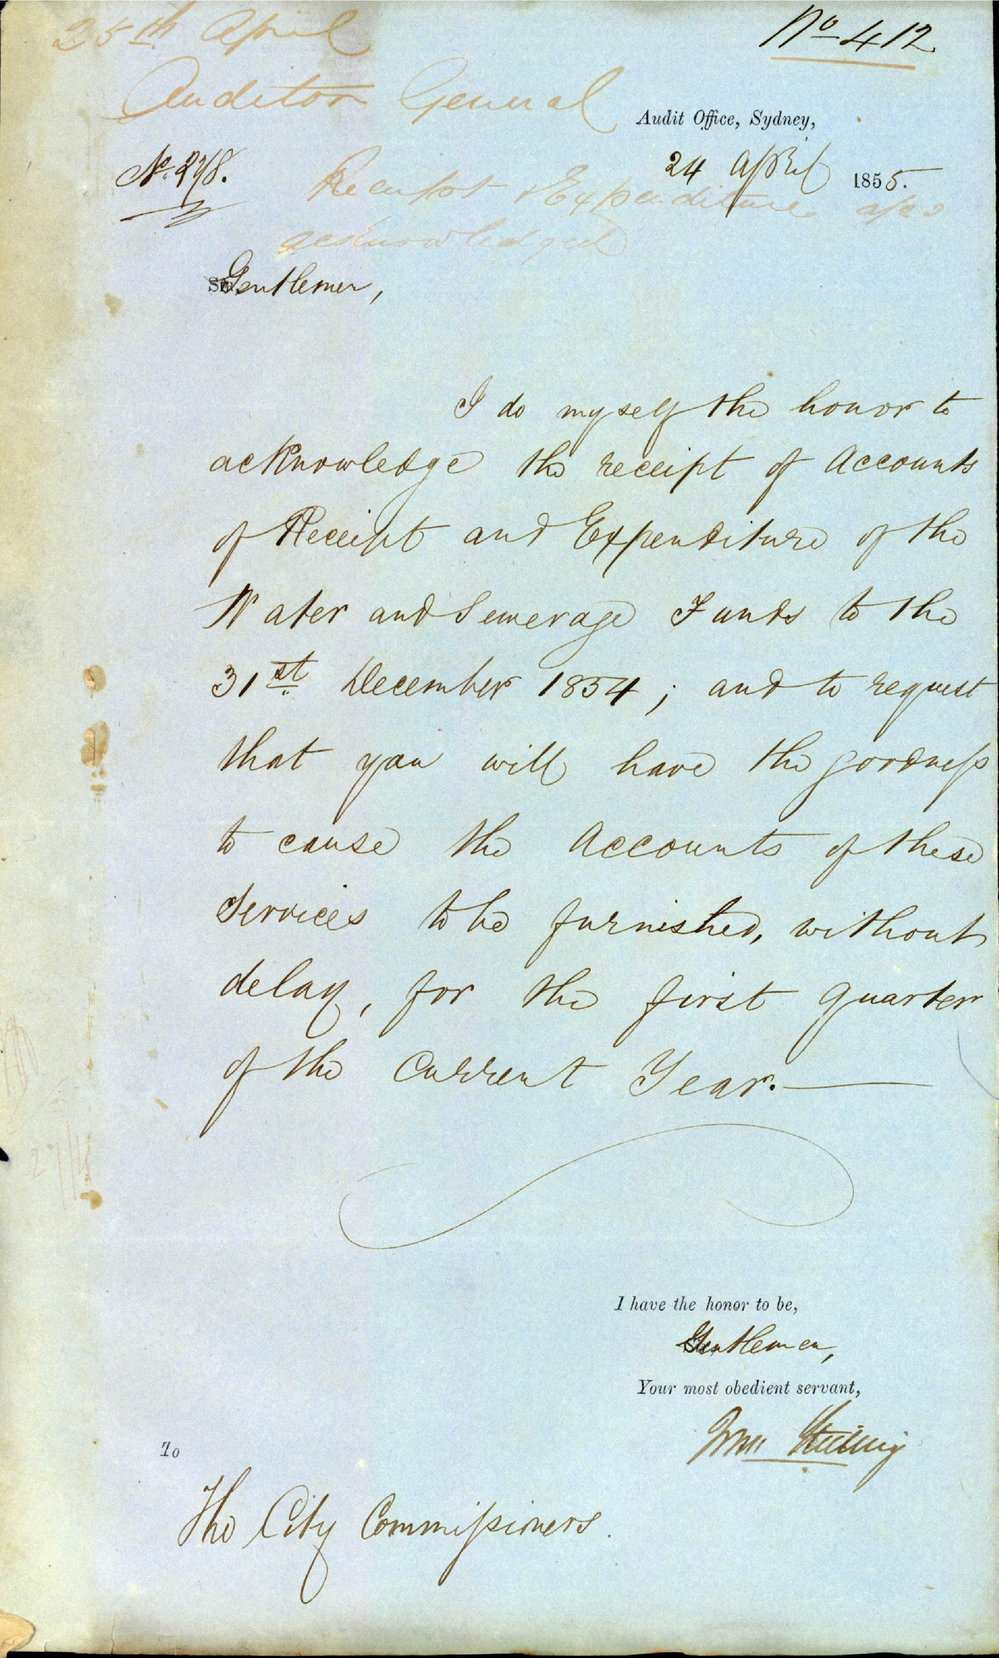 25th April
No 412
Auditor General
Audit Office, Sydney,
No. 278.
24 April 1855.
Receipt & Expenditure a/cs
acknowledged
Gentlemen,
I do myself the honor to
acknowledge the receipt of Accounts
of Receipt and Expenditure of the
Water and Sewerage Funds to the
31st December 1854; and to request
that you will have the goodness
to cause the Accounts of these
Services to be furnished, without
delay, for the first quarter
of the Current Year.
I have the honor to be,
Gentlemen,
Your most obedient servant,
Wm
To
The City Commissioners.